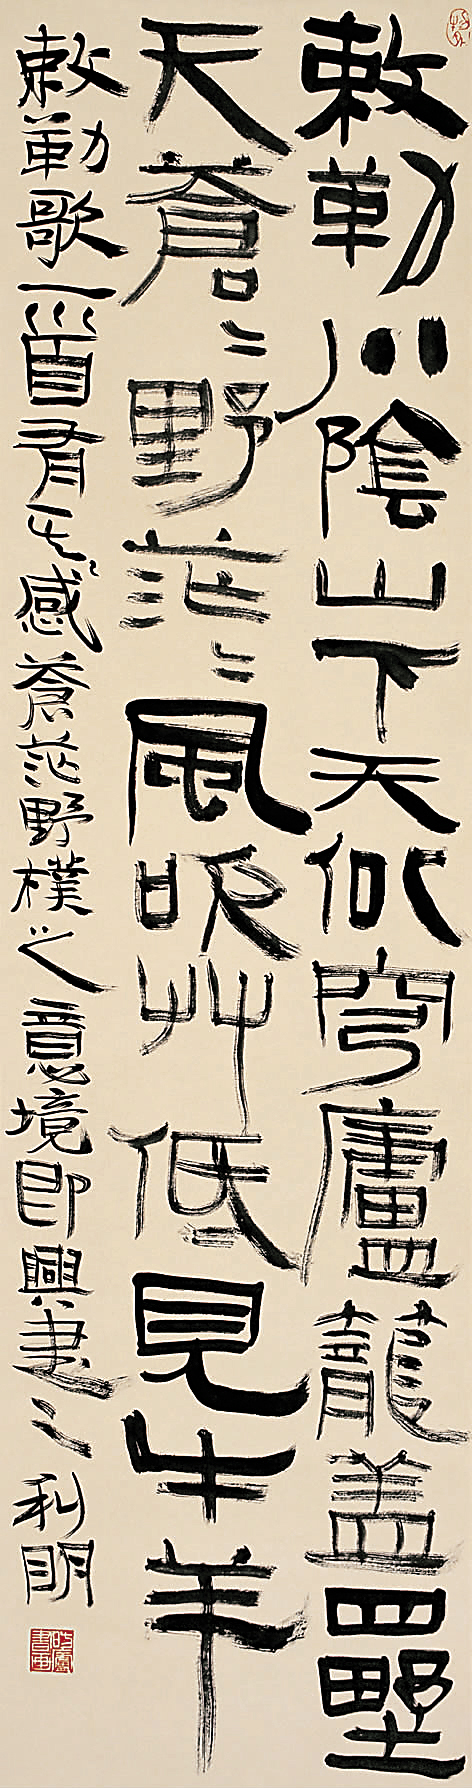 敕勒川陰山下天似穹廬籠盖四野
天蒼〻野茫〻風吹艸低見牛羊
敕勒歌一首有感蒼茫野樸之意境即興書之利明